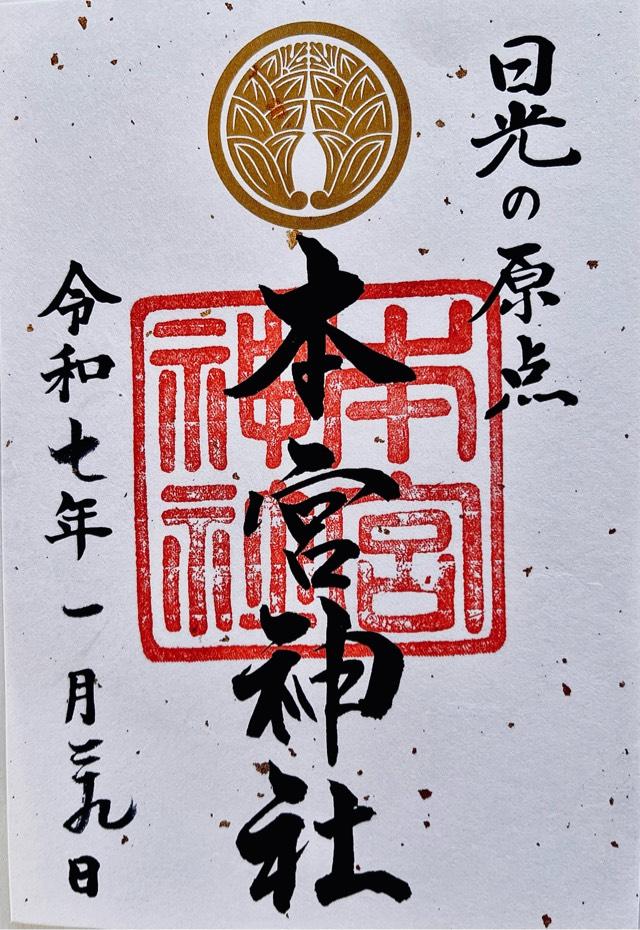 日光の原点
本宮神社
本宮
神社
令和七年一月二十九日